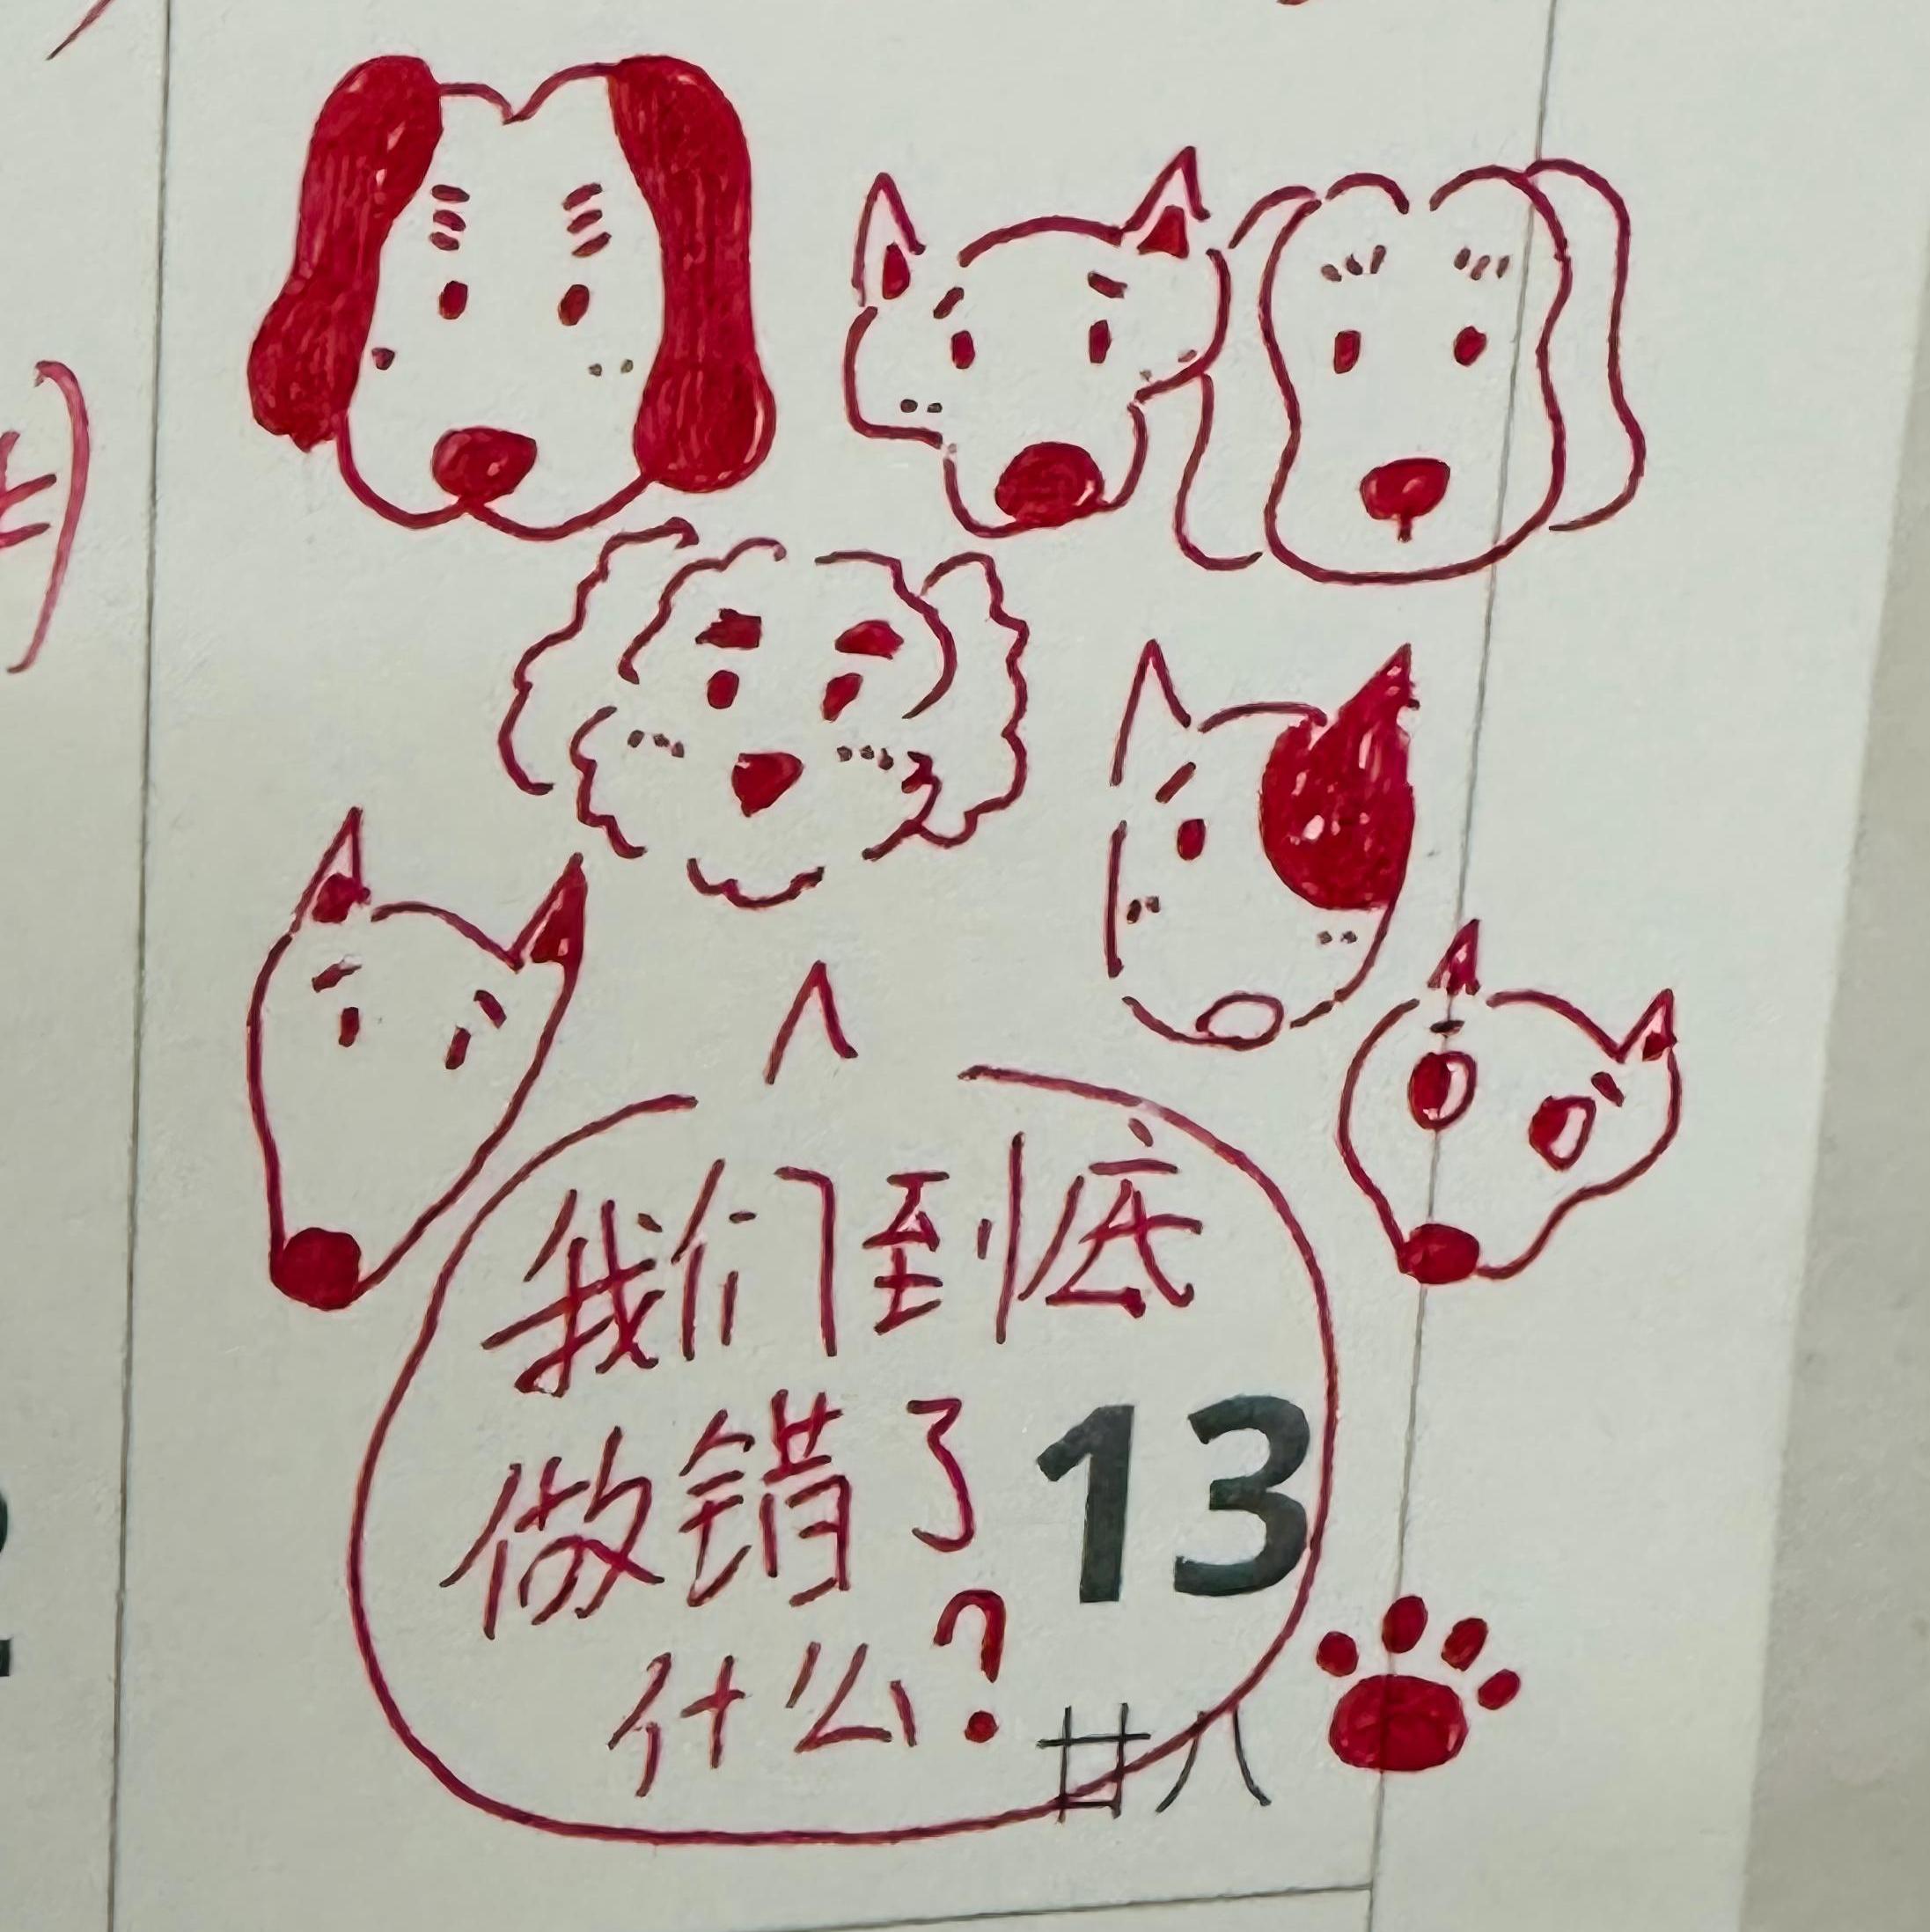 我们到底
做错了 13
什么?
廿八